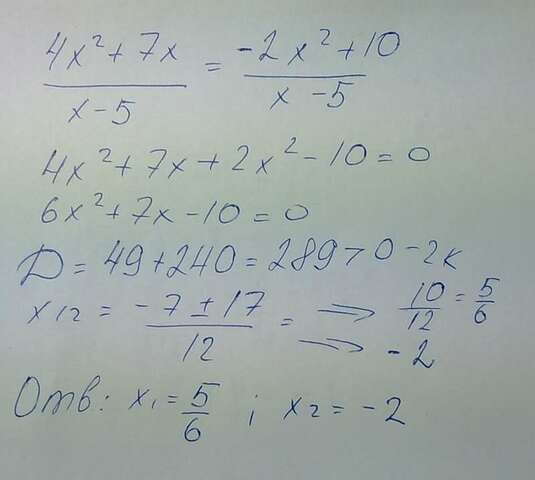 4x² + 7x / x - 5 = -2x² + 10 / x - 5
4x² + 7x + 2x² - 10 = 0
6x² + 7x - 10 = 0
D = 49 + 240 = 289 > 0 - 2к
x₁₂ = -7 ± 17 / 12 = ⇒ 10/12 = 5/6
⇒ -2
Отв: x₁ = 5/6 ; x₂ = -2